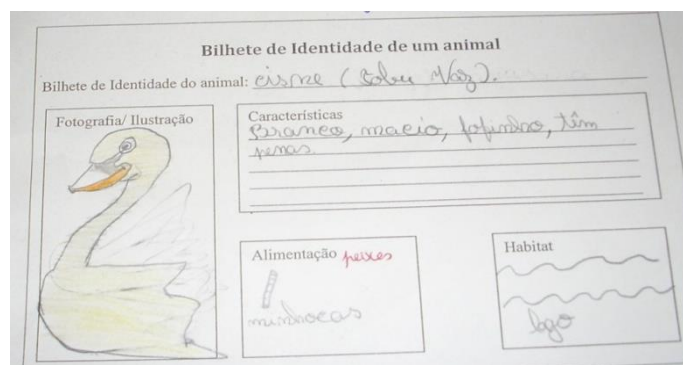 Bilhete de Identidade de um animal
Bilhete de Identidade do animal: cisne ( Vaz ).
Fotografia/ Ilustração
Características
Branco, macio, fofinho, têm
penas.
Alimentação peixes
minhocas
Habitat
lago